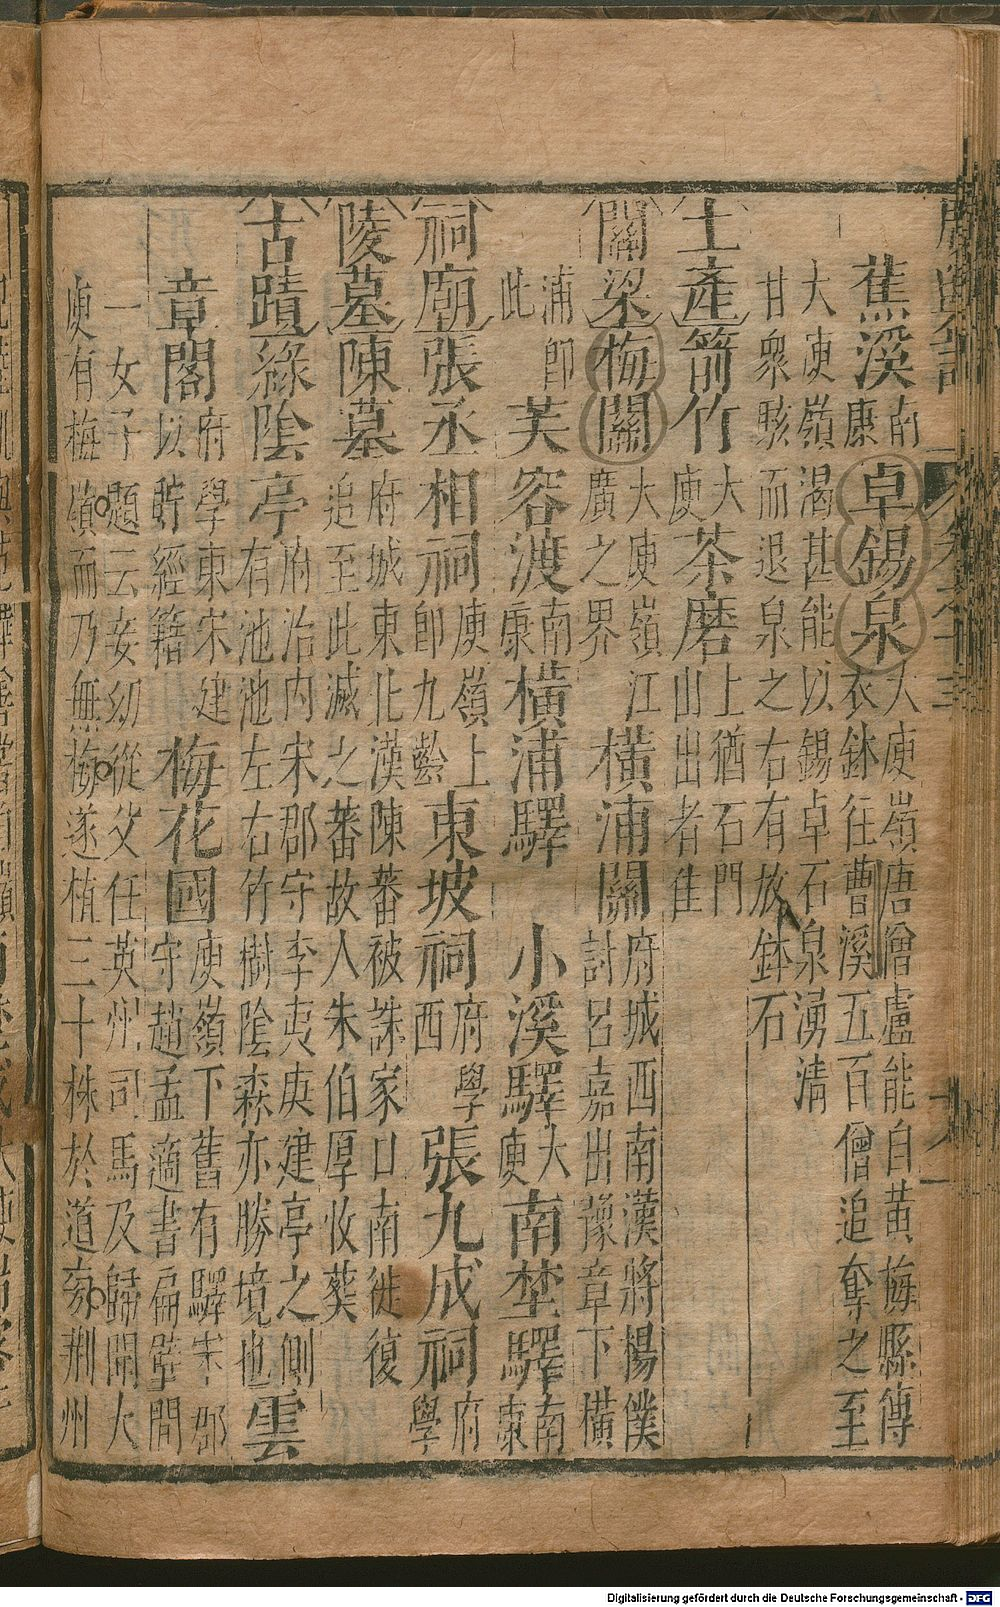 蕉溪南康 卓錫泉大庾嶺唐僧盧能自黃梅縣傳衣鉢往曹溪五百僧追奪之至
大庾嶺渴甚能以錫卓石泉湧清甘衆駭而退泉之右有放鉢石
土產箭竹大庾 茶磨上猶石門山出者佳
關梁梅關大庾嶺江廣之界 橫浦關府城西南漢將楊僕討呂嘉出豫章下橫
浦即此 芙容渡南康 橫浦驛 小溪驛大庾 南埜驛南康
祠廟張丞相祠庾嶺上即九齡 東坡祠府西 張九成祠府學
陵墓陳墓府城東北漢陳蕃被誅家口南徙復追至此滅之蕃故人朱伯厚收葵
古蹟綠陰亭府治內宋郡守李夷庚建亭之側有池池左右竹樹陰森亦勝境也 雲
章閣府學東宋建以貯經籍 梅花國庾嶺下舊有驛宋郡守趙孟適書扁壁間
一女子題云妾幼從父任英州司馬及歸聞大庾有梅嶺而乃無梅遂植三十株於道旁荆州
Digitalisierung gefördert durch die Deutsche Forschungsgemeinschaft - DFG